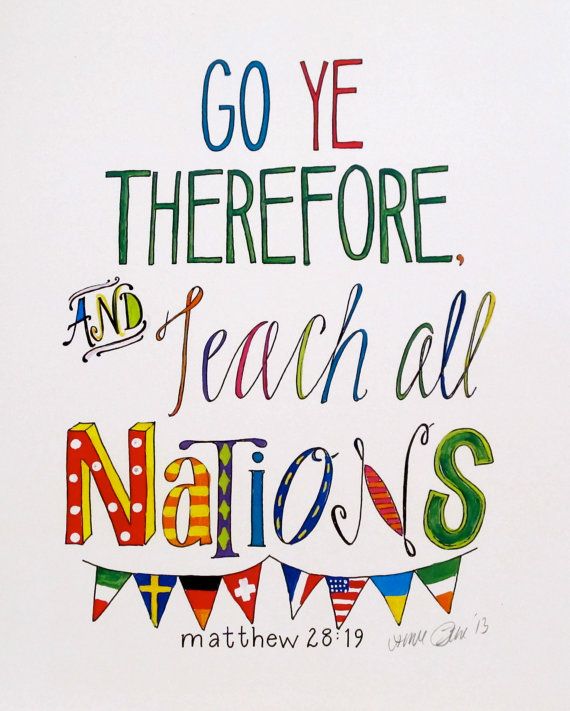 GO YE
THEREFORE,
AND Teach all
NaTiONS
matthew 28:19
'13